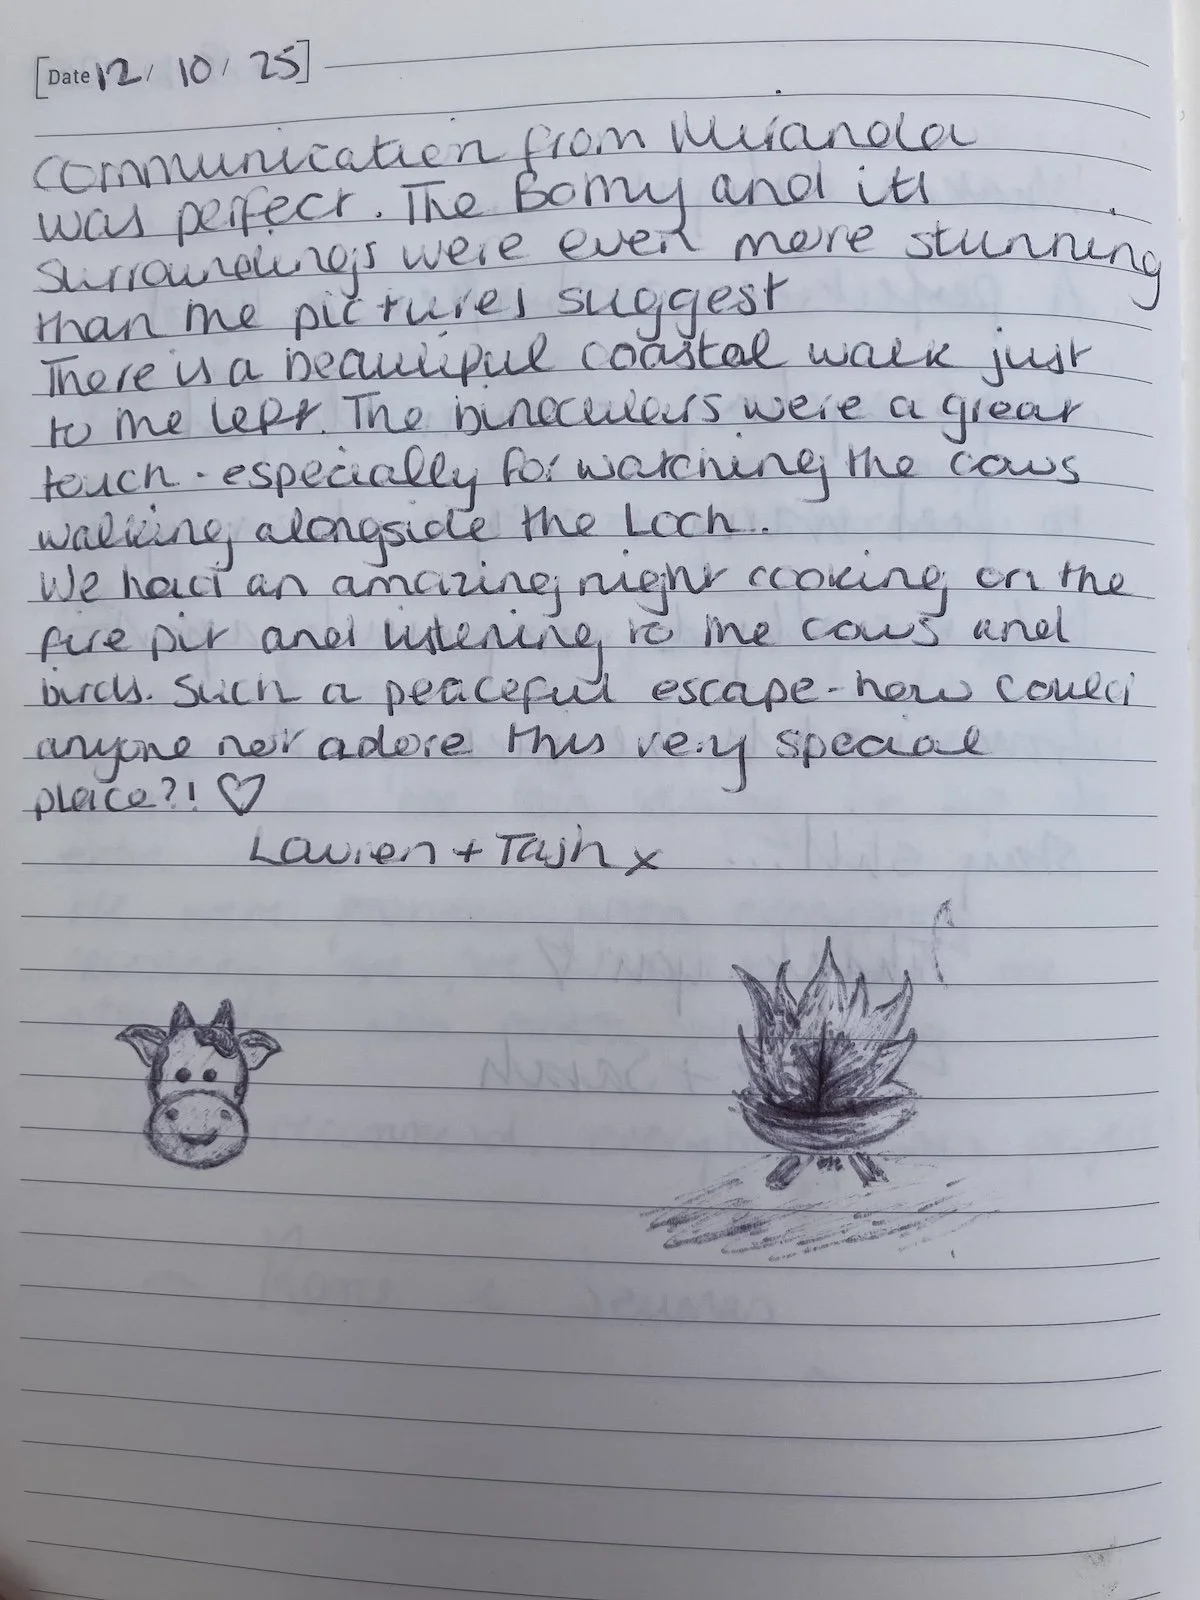 [Date 12/ 10/ 25]
Communication from Miranda
was perfect. The Bothy and its
surroundings were even more stunning
than the pictures suggest
There is a beautiful coastal walk just
to the left. The binoculars were a great
touch - especially for watching the cows
walking alongside the Loch..
We had an amazing night cooking on the
fire pit and listening to the cows and
birds. Such a peaceful escape - how could
anyone not adore this very special
place?! ♡
Lauren + Tash x